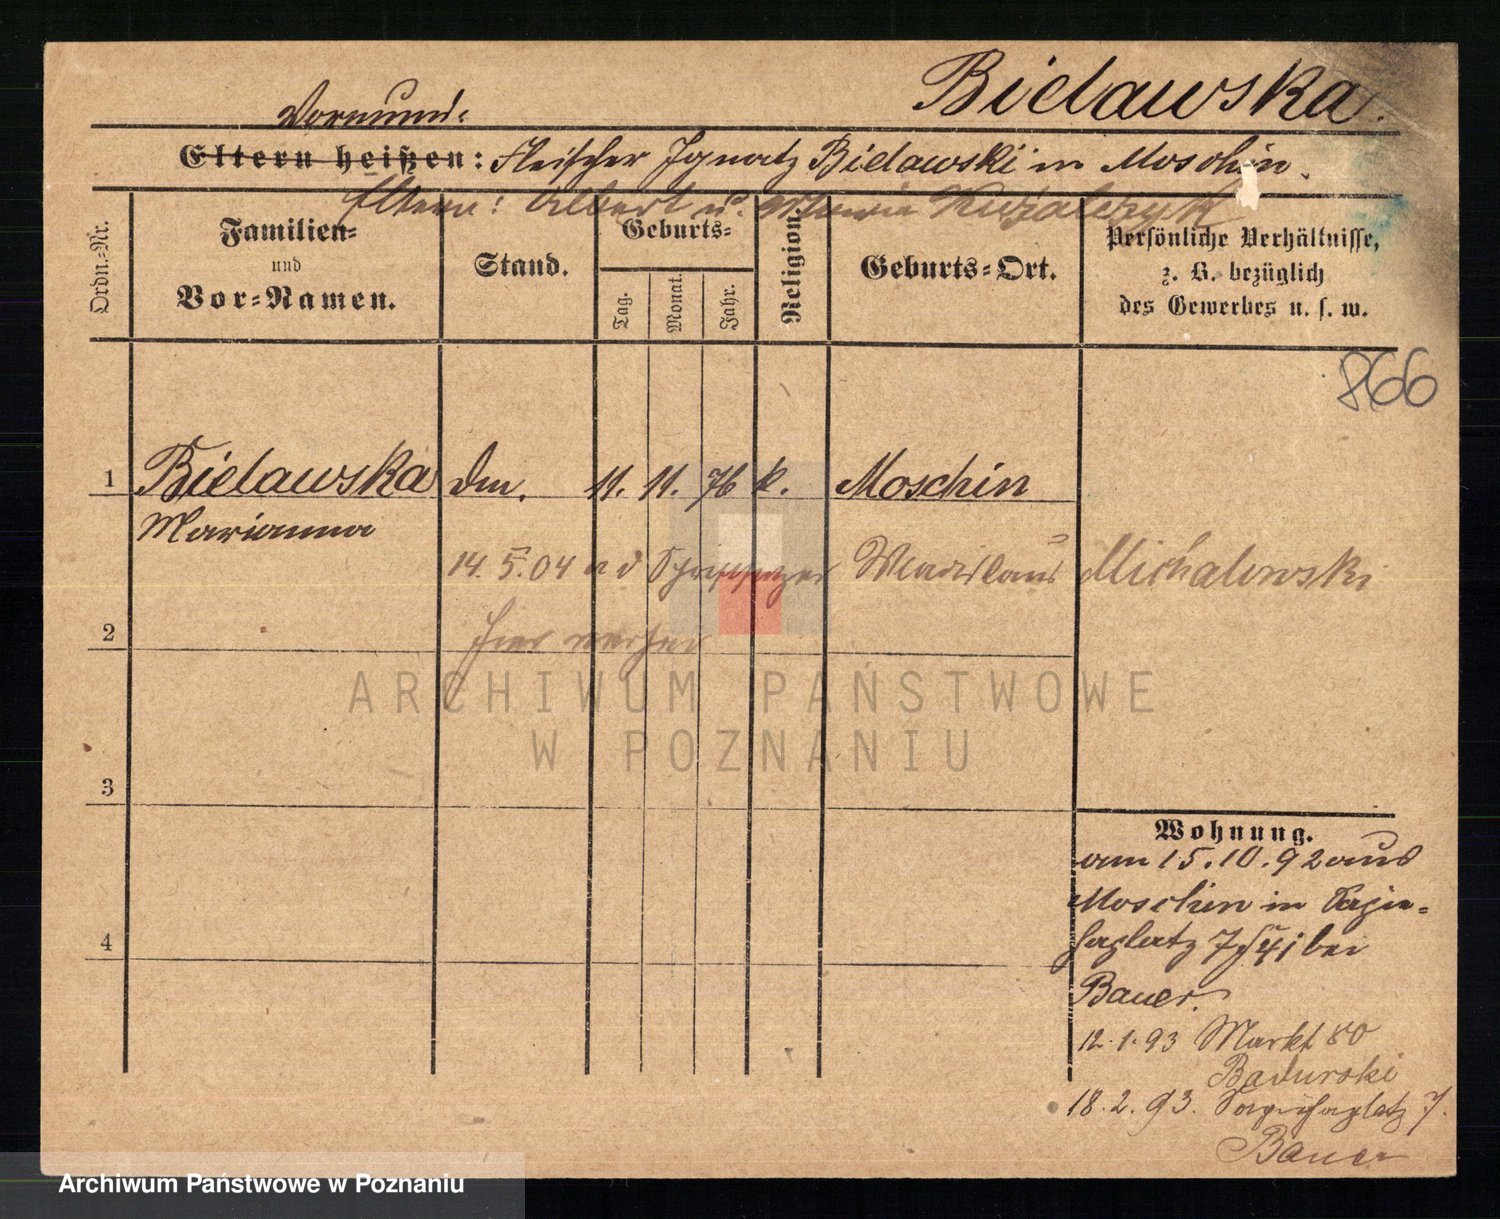 Bielawska.
Vormund:
Eltern heißen: Fleischer Ignatz Bielawski in Moschin.
Eltern: Albert u. Maria
Ordn.-Nr.
Familien-
und
Vor-Namen.
Stand.
Geburts-
Tag.
Monat.
Jahr.
Religion.
Geburts-Ort.
Persönliche Verhältnisse,
z. B. bezüglich
des Gewerbes u. s. w.
866
1 Bielawska Dm. 11. 11. 76 k. Moschin
Marianna
14. 5. 04 Wladislaus Michalowski
2 hier
3
4
Wohnung.
am 15.10.92 aus
Moschin in Sapie-
haplatz 7 bei
Bauer.
12.1.93 Markt 80
Badurski
18.2.93. Sapiehaplatz 7.
Bauer
ARCHIWUM PAŃSTWOWE
W POZNANIU
Archiwum Państwowe w Poznaniu